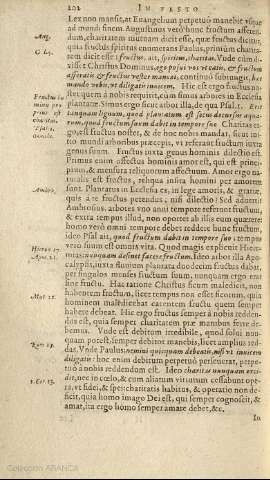 202 IN FESTO
Lex non mansit, at Euangelium perpetuò manebit vsque
ad mundi finem. Augustinus verò hunc fructum asserendum,
charitatem mutuam dicit esse, quæ fructus dicitur,
quia fructus spiritus enumerans Paulus, primùm charitatem
dicit esse: fructus, ait, spiritus, charitas. Vnde cùm dixisset
Christus Dominus, ego posui vos vt eatis, & fructum
afferatis & fructus vester maneat, continuò subiungit, hæc
mando vobis, vt diligatis inuicem. Hic est ergo fructus noster,
quem à nobis requirit, cùm simus arbores in Ecclesia
plantatæ. Simus ergo sicut arbor illa, de qua Psal. 1. Erit
tanquam lignum, quod plantatum est secus decursus aquarum,
quod fructum suum dabit in tempore suo. Charitas ergo,
est fructus noster, & de hoc nobis mandat, sicut initio
mundi arboribus præcepit, vt referant fructum iuxta
genus suum. Fructus iuxta genus hominis dilectio est.
Primus enim affectus hominis amor est, qui est principium,
& mensura reliquorum affectuum. Amor ergo naturalis
est fructus, reliqua insita homini per amorem
sunt. Plantatus in Ecclesia es, in lege amoris, & gratiæ,
quis à te fructus petendus, nisi dilectio? Sed aduertit
Ambrosius, arbores vno anni tempore referunt fructum,
& extra tempus illud, non oportet ab illis eum quærere:
homo verò omni tempore debet reddere hunc fructum,
ideo Psal. ait, quod fructum dabit in tempore suo: tempus
verò suum est omnis vita. Quod magis explicuit Hieremias:
nunquam desinet facere fructum. Ideo arbor illa Apocalypsis,
iuxta flumen plantata duodecim fructus dabat,
per singulos menses fructum suum, nunquam ergo erat
sine fructu. Hac ratione Christus ficum maledicit, non
habentem fructum, licet tempus non esset ficorum, quia
hominem maledicebat carentem fructu quem semper
habere debeat. Hic ergo fructus semper à nobis reddendus
est, quia semper charitatem præ manibus ferre debemus.
Vnde est debitum irredibile, quod solui nunquam
potest, semper debitor manebis, licet amplius reddas.
Vnde Paulus: nemini quicquam debeatis, nisi vt inuicem
diligatis: hoc enim debitum perpetuò perseuerat, perpetuò
à nobis reddendum est. Ideo charitas nunquam excidit,
nec in cœlo, & cùm aliarum virtutum cessabunt opera,
vt fidei, & spei: charitatis habitus, & operatio non deficit,
quia homo imago Dei est, qui semper cognoscit, &
amat, ita ergo homo semper amare debet, &c.
In
Aug.
Gal. 5.
Psal. 1.
Ambro.
Hierem. 17.
Apoc. 22.
Mat. 21.
Rom. 13.
1. Cor. 13.
Colección ABANCA